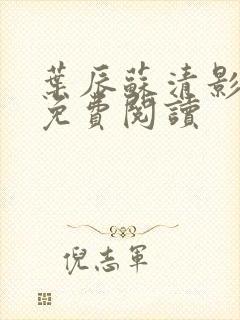 葉辰蘇清影
免費閱讀
倪志軍